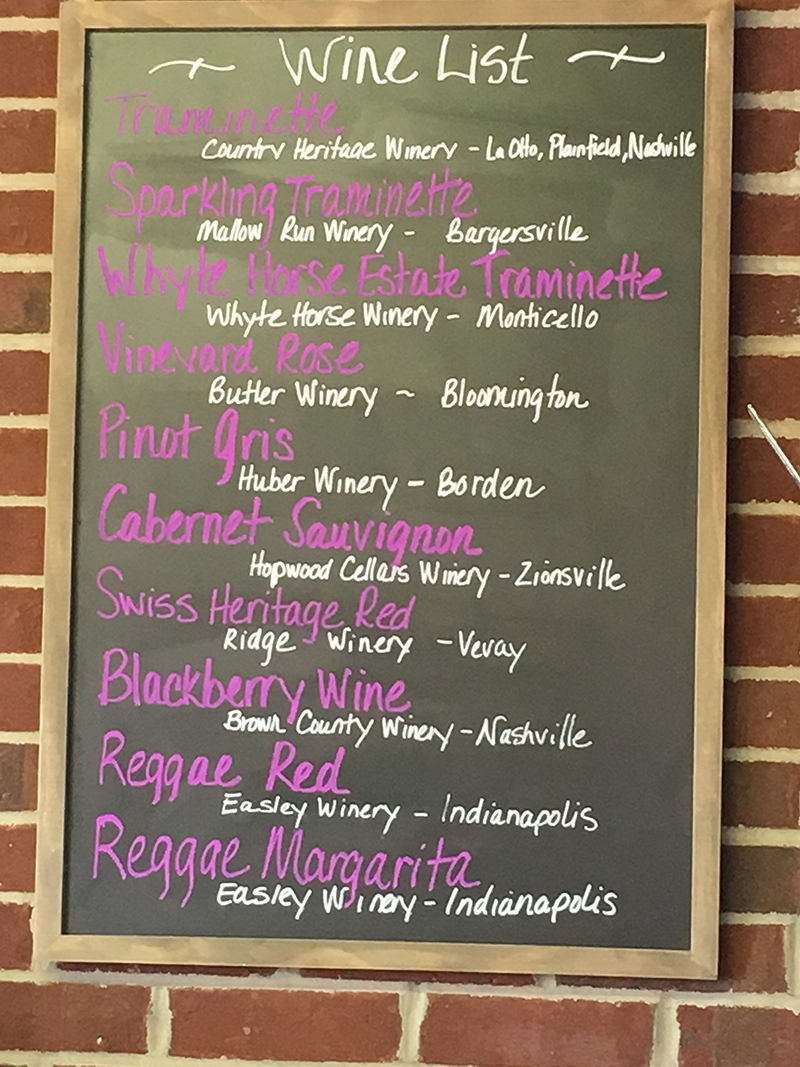 Wine List
Traminette
Country Heritage Winery - La Otto, Plainfield, Nashville
Sparkling Traminette
Mallow Run Winery - Bargersville
Whyte Horse Estate Traminette
Whyte Horse Winery - Monticello
Vineyard Rose
Butler Winery ~ Bloomington
Pinot Gris
Huber Winery - Borden
Cabernet Sauvignon
Hopwood Cellars Winery - Zionsville
Swiss Heritage Red
Ridge Winery - Vevay
Blackberry Wine
Brown County Winery - Nashville
Reggae Red
Easley Winery - Indianapolis
Reggae Margarita
Easley Winery - Indianapolis